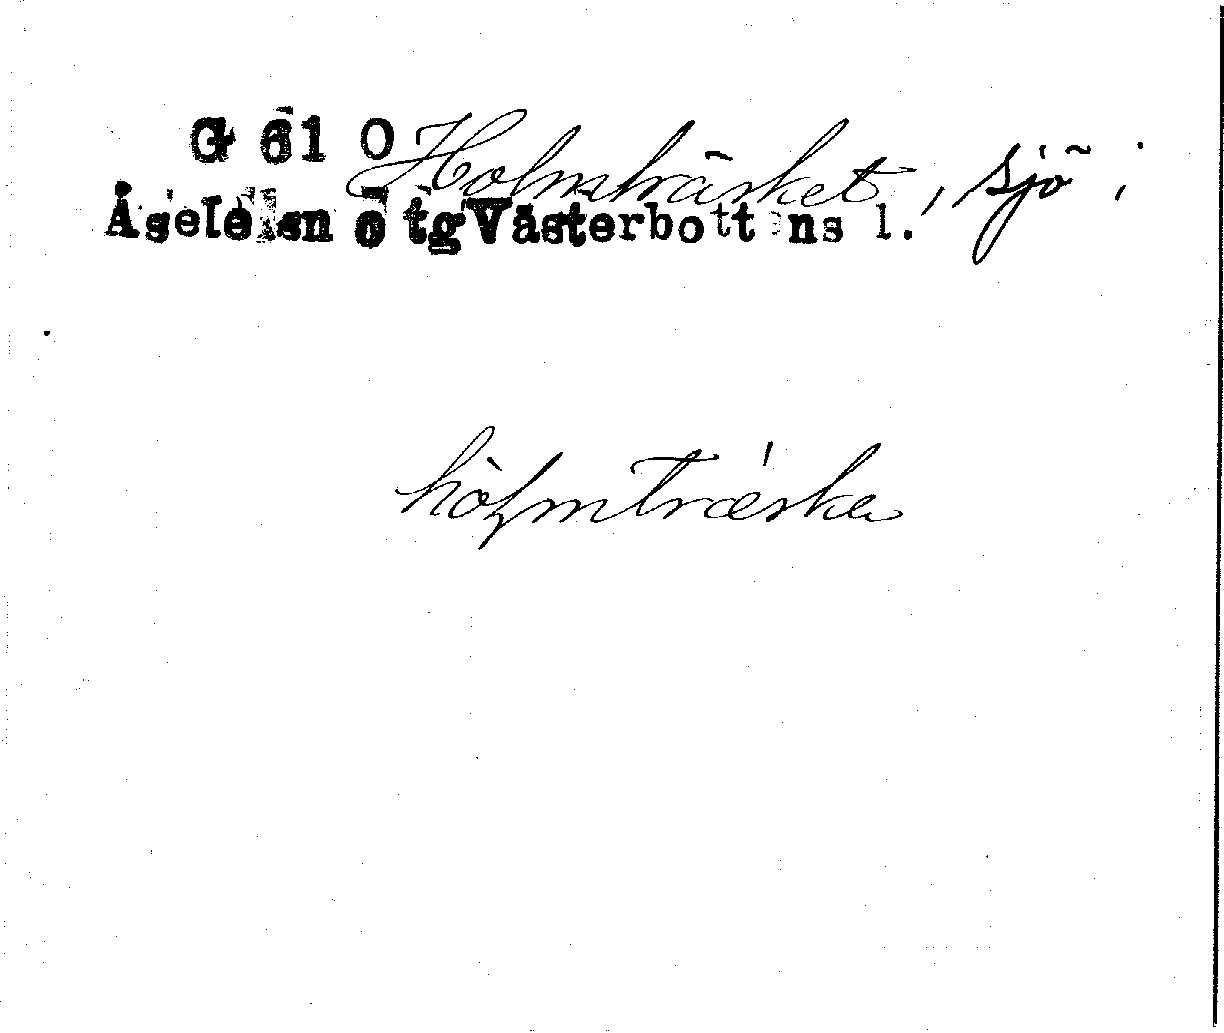 G 61 O Holmträsket, sjö i
Åsele sn o tg Västerbottens l.
hòlmtræska